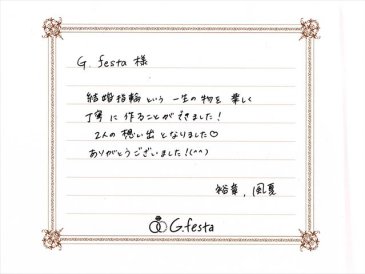 G. festa 様
結婚指輪という 一生の物を 楽しく
丁寧に作ることができました!
2人の想い出となりました♡
ありがとうございました!(^^)
裕章, 風夏
G.festa